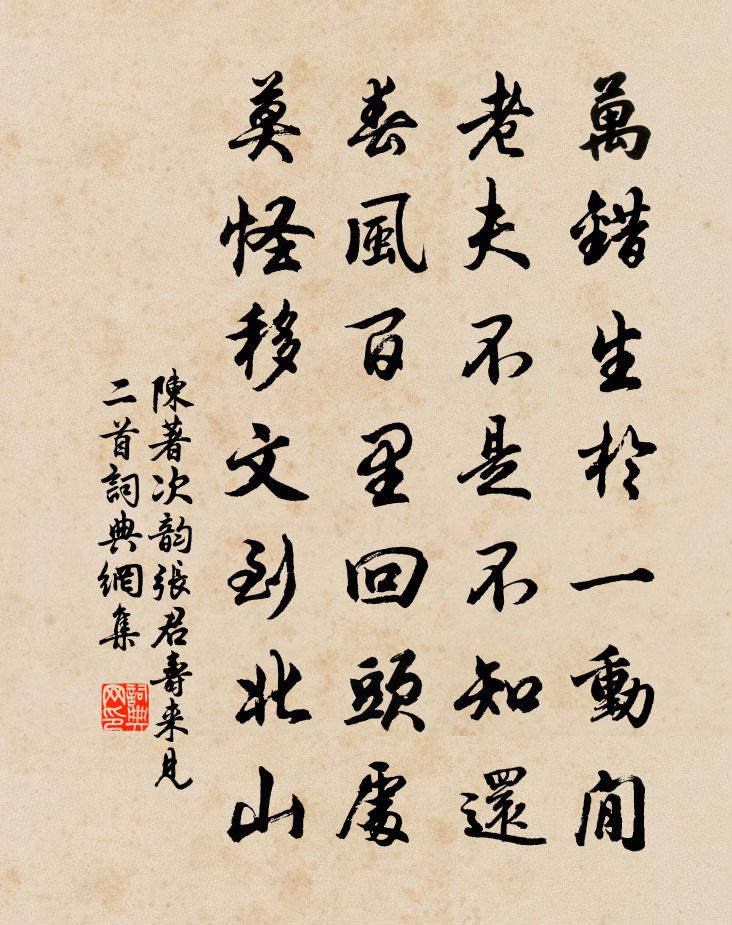 萬錯生於一動間
老夫不是不知還
春風百里回頭處
莫怪移文到北山
陳著次韵張君壽来見
二首詞典網集
詞典网印